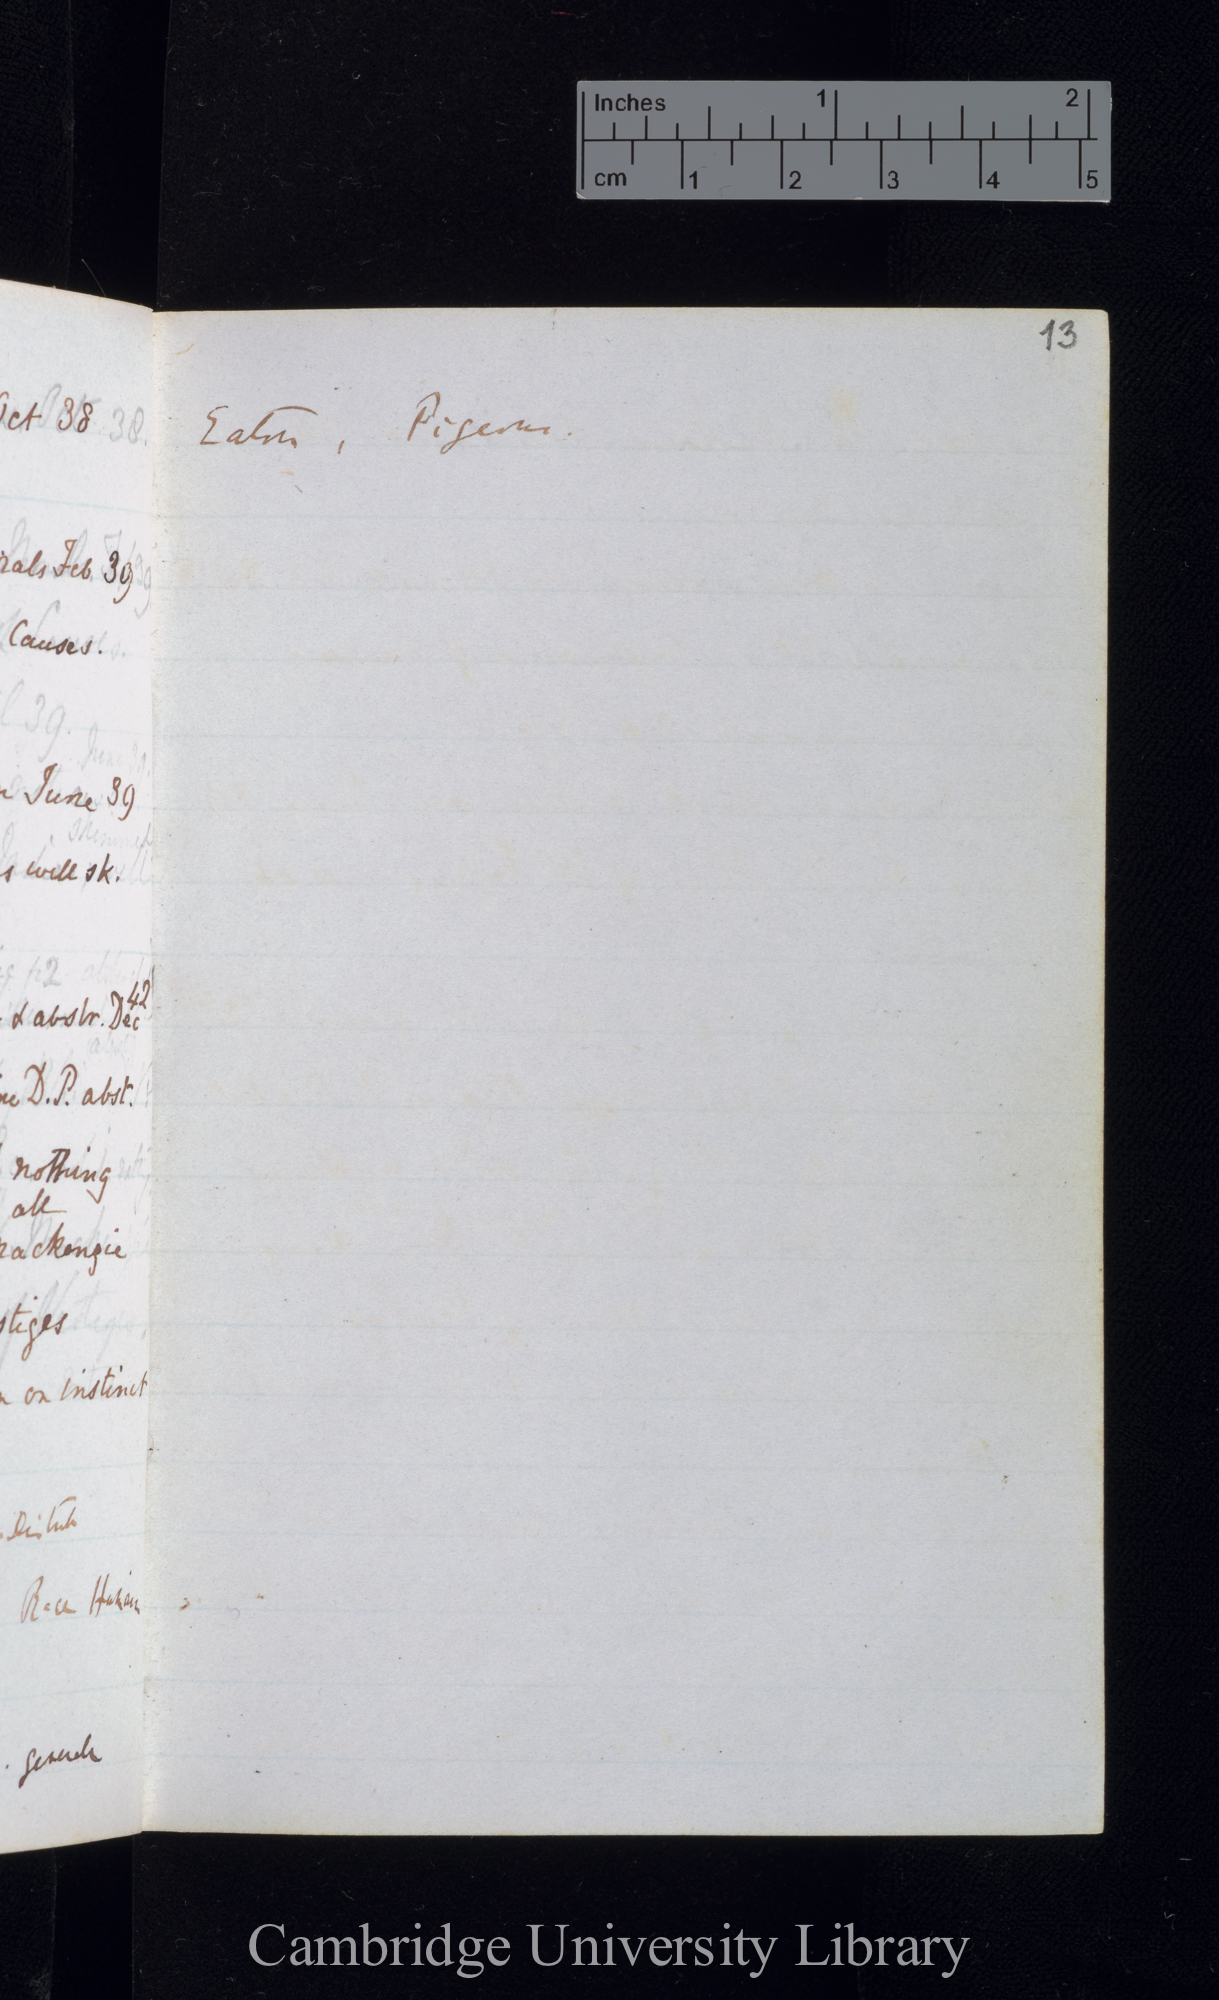 Inches 1 2
cm 1 2 3 4 5
Oct 38
rals Feb. 39
Causes.
June 39
s will sk.
& abstr. Dec 42
D.P. abst.
nothing
all
mackenzie
stiges
n on instinct
Distrib
Race Human
13
Eaton, Pigeons.
Cambridge University Library